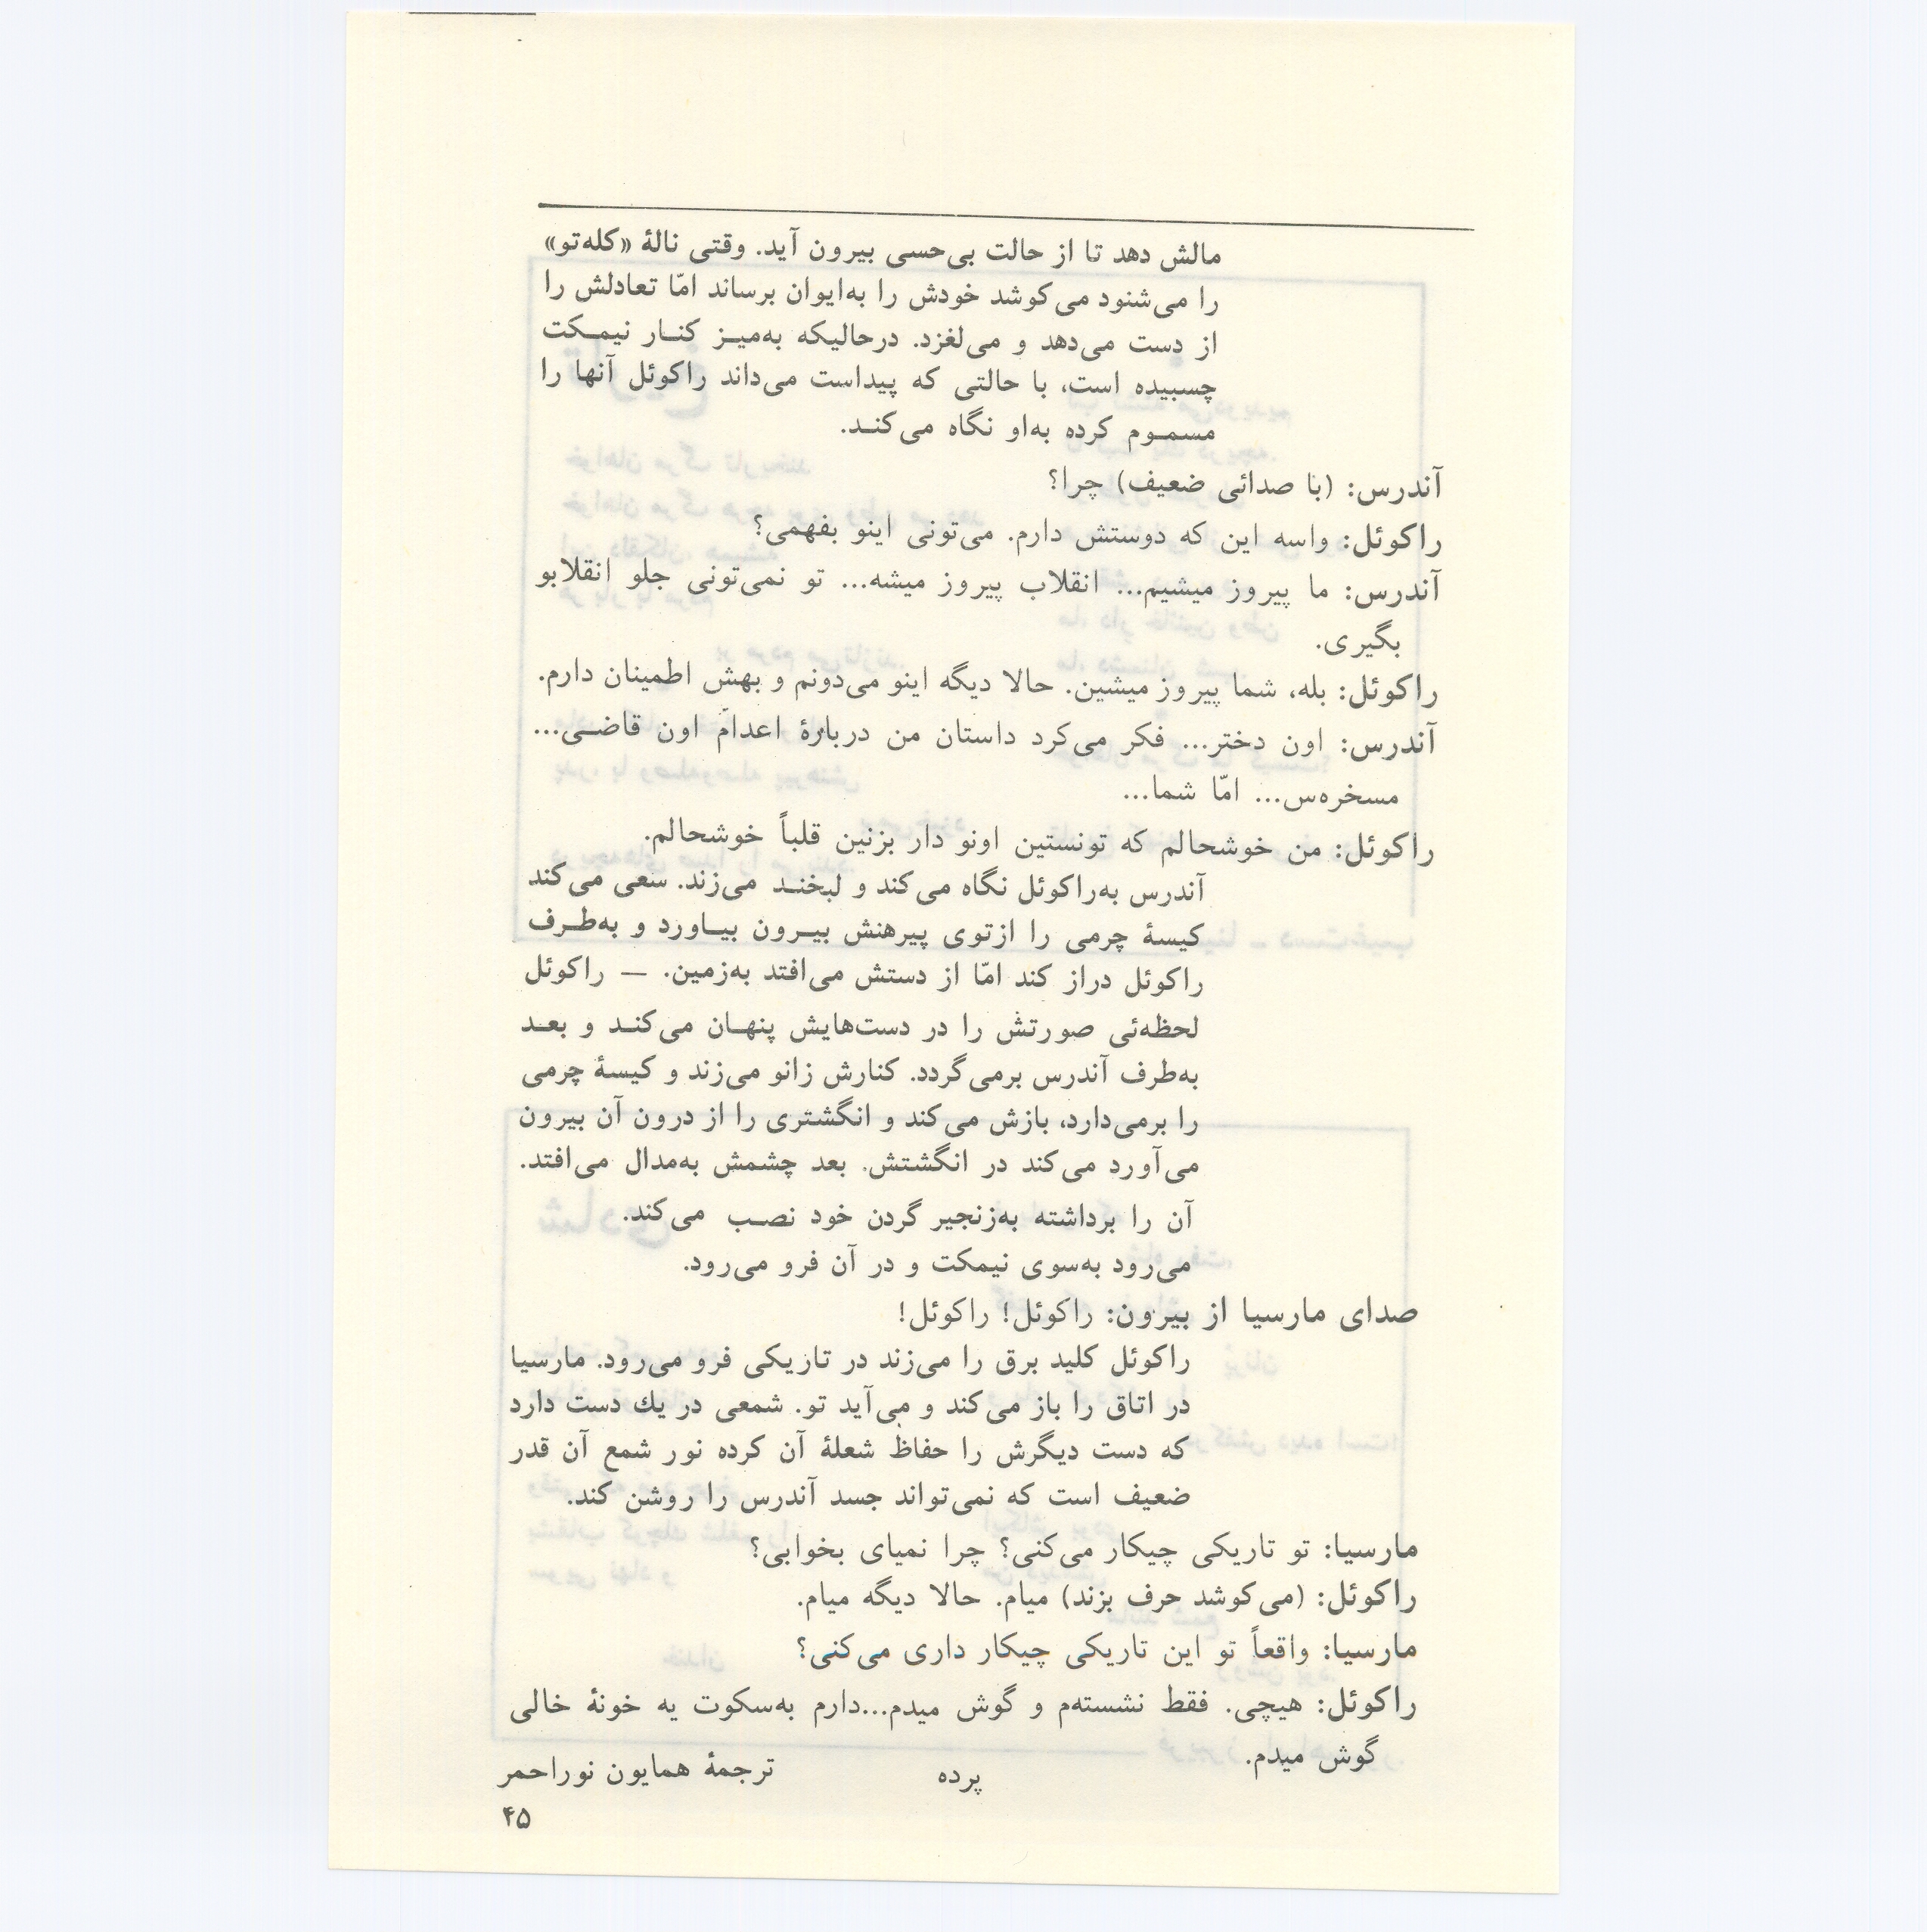 مالش دهد تا از حالت بی‌حسی بیرون آید. وقتی نالهٔ «کله‌تو»
را می‌شنود می‌کوشد خودش را به‌ایوان برساند امّا تعادلش را
از دست می‌دهد و می‌لغزد. درحالیکه به‌میـز کنـار نیمـکت
چسبیده است، با حالتی که پیداست می‌داند راکوئل آنها را
مسمـوم کرده به‌او نگاه می‌کنـد.
آندرس: (با صدائی ضعیف) چرا؟
راکوئل: واسه این که دوستش دارم. می‌تونی اینو بفهمی؟
آندرس: ما پیروز میشیم... انقلاب پیروز میشه... تو نمی‌تونی جلو انقلابو
بگیری.
راکوئل: بله، شما پیروز میشین. حالا دیگه اینو می‌دونم و بهش اطمینان دارم.
آندرس: اون دختر... فکر می‌کرد داستان من دربارهٔ اعدام اون قاضـی...
مسخره‌س... امّا شما...
راکوئل: من خوشحالم که تونستین اونو دار بزنین قلباً خوشحالم.
آندرس به‌راکوئل نگاه می‌کند و لبخنـد می‌زند. سعی می‌کند
کیسهٔ چرمی را ازتوی پیرهنش بیـرون بیـاورد و به‌طـرف
راکوئل دراز کند امّا از دستش می‌افتد به‌زمین. — راکوئل
لحظه‌ئی صورتش را در دست‌هایش پنهـان می‌کنـد و بعـد
به‌طرف آندرس برمی‌گردد. کنارش زانو می‌زند و کیسهٔ چرمی
را برمی‌دارد، بازش می‌کند و انگشتری را از درون آن بیرون
می‌آورد می‌کند در انگشتش. بعد چشمش به‌مدال می‌افتد.
آن را برداشته به‌زنجیر گردن خود نصـب می‌کند.
می‌رود به‌سوی نیمکت و در آن فرو می‌رود.
صدای مارسیا از بیرون: راکوئل! راکوئل!
راکوئل کلید برق را می‌زند در تاریکی فرو می‌رود. مارسیا
در اتاق را باز می‌کند و می‌آید تو. شمعی در یك دست دارد
که دست دیگرش را حفاظ شعلهٔ آن کرده نور شمع آن قدر
ضعیف است که نمی‌تواند جسد آندرس را روشن کند.
مارسیا: تو تاریکی چیکار می‌کنی؟ چرا نمیای بخوابی؟
راکوئل: (می‌کوشد حرف بزند) میام. حالا دیگه میام.
مارسیا: واقعاً تو این تاریکی چیکار داری می‌کنی؟
راکوئل: هیچی. فقط نشسته‌م و گوش میدم...دارم به‌سکوت یه خونهٔ خالی
گوش میدم.
پرده
ترجمهٔ همایون نوراحمر
۴۵